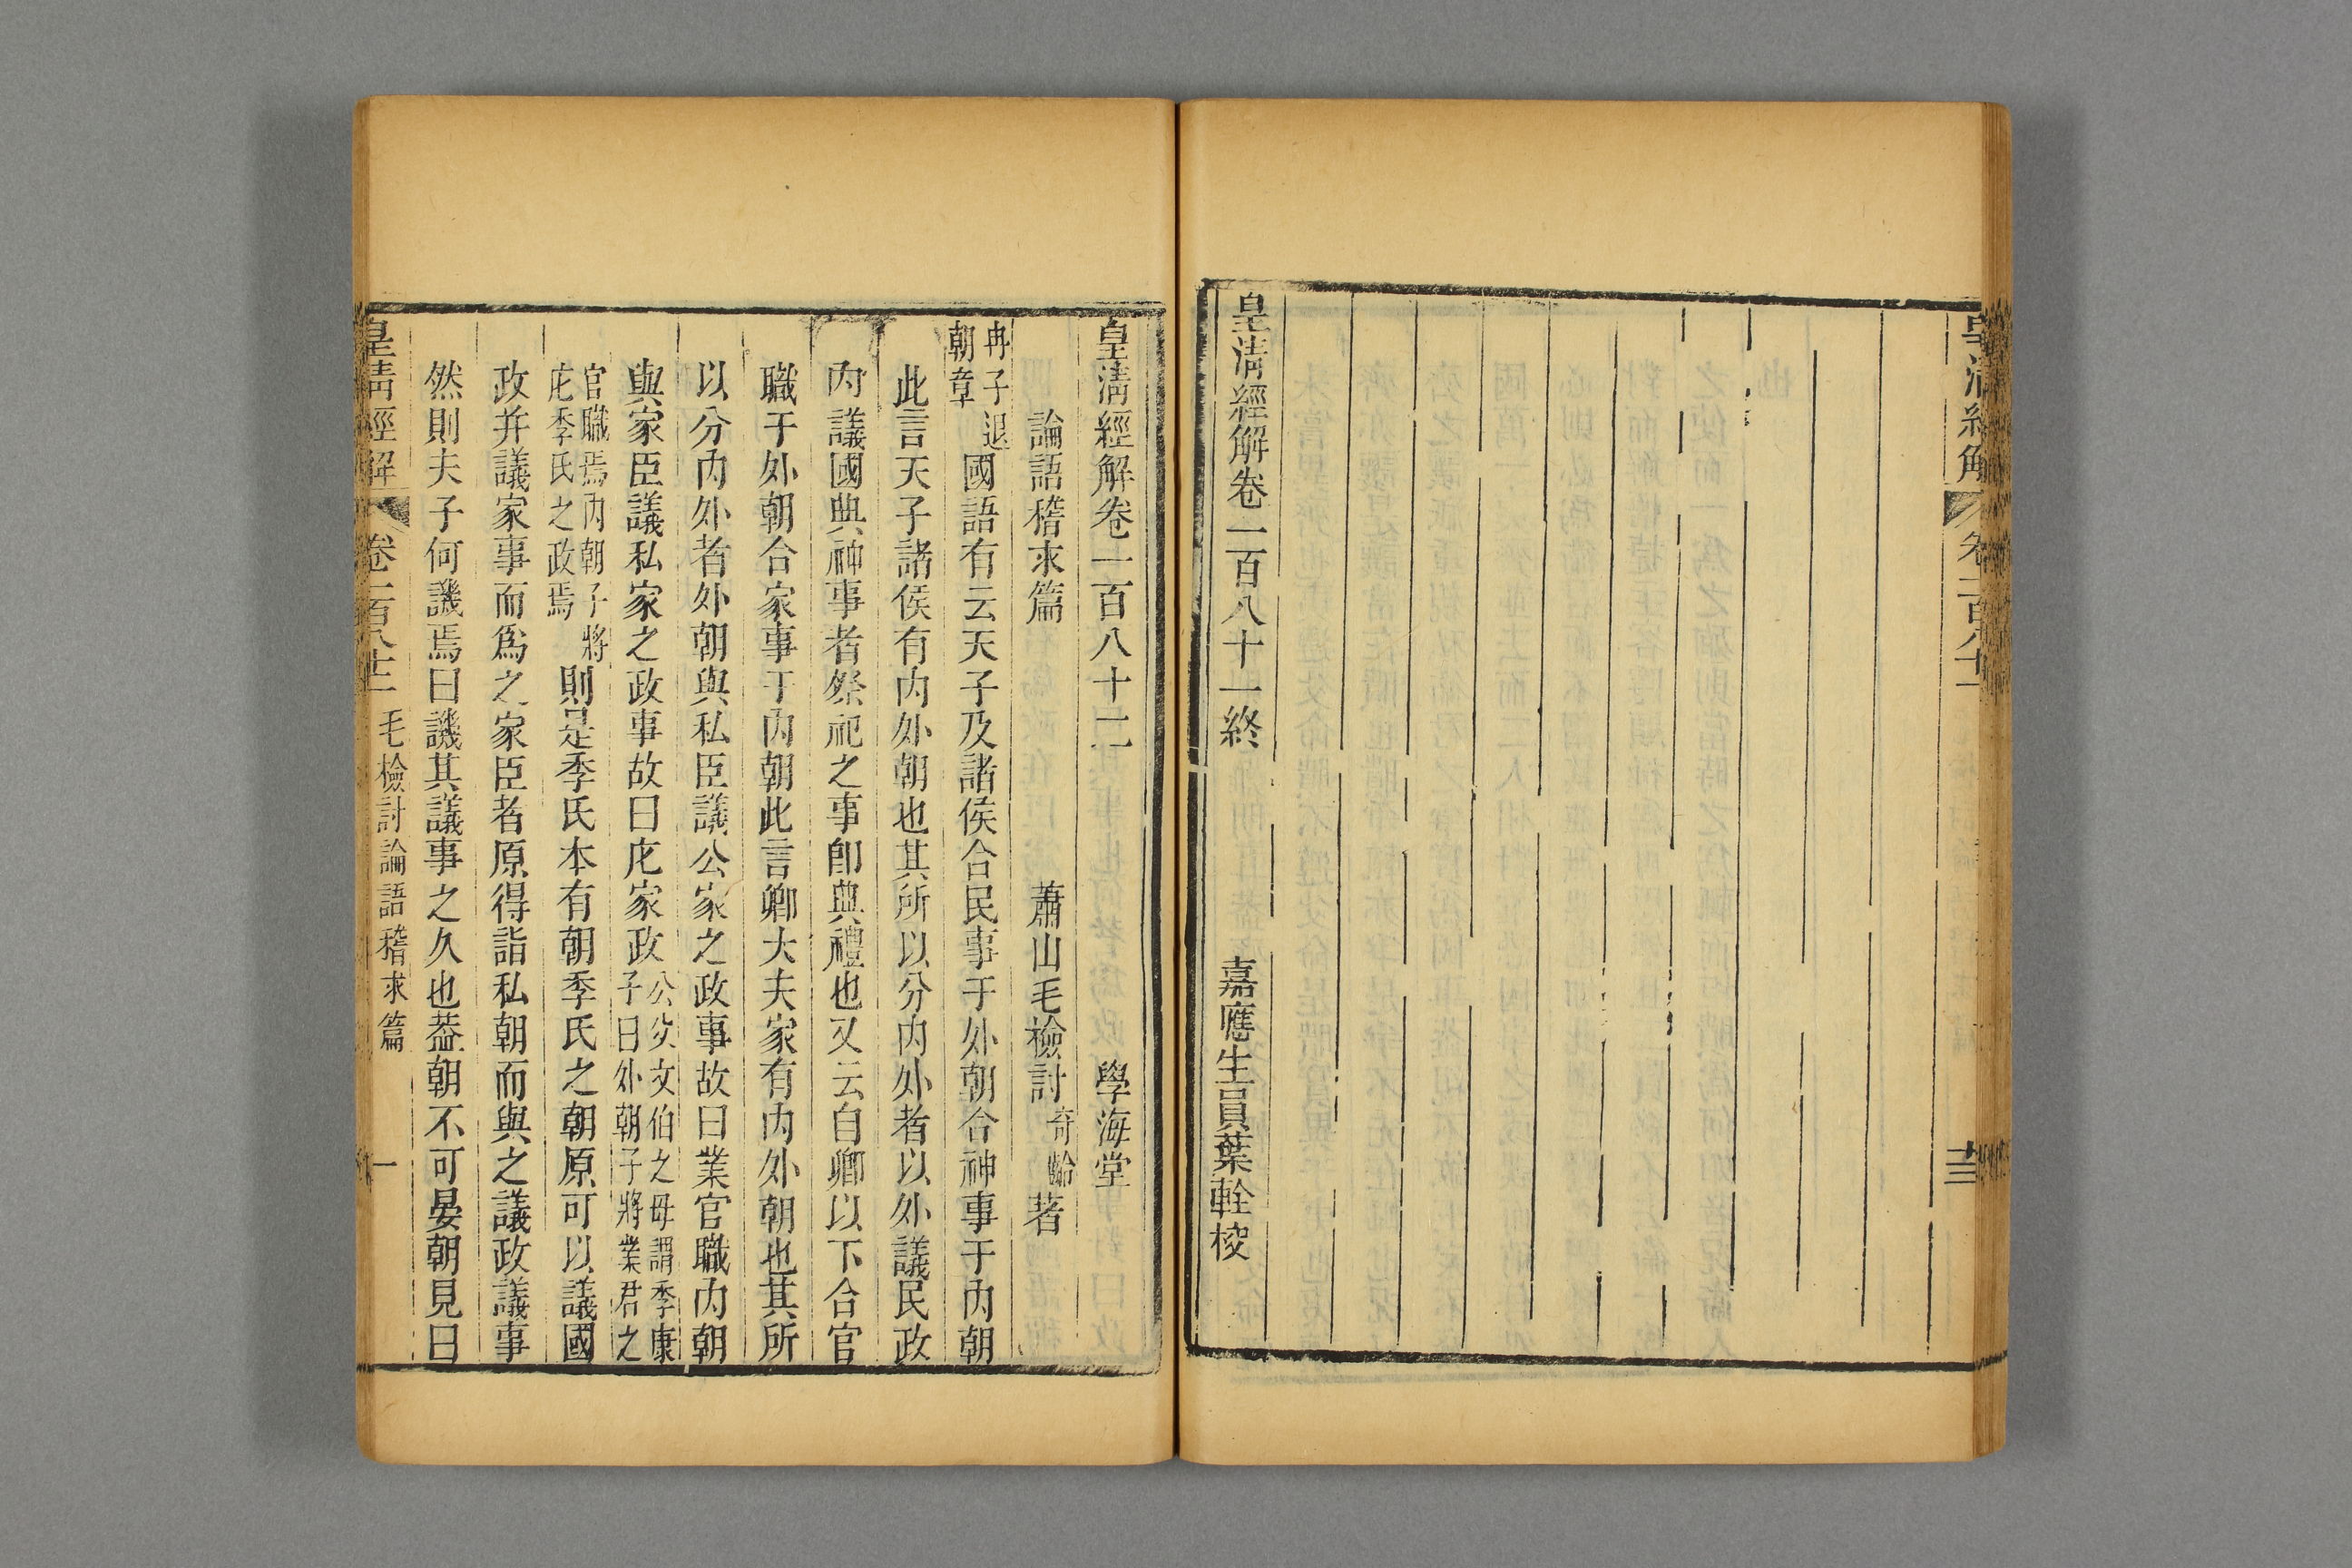 皇清經解
卷一百八十一
十三
皇清經解卷一百八十一終
嘉應生員葉輇校
皇清經解卷一百八十二
學海堂
論語稽求篇
蕭山毛檢討奇齡著
冉子退
朝章
國語有云天子及諸侯合民事于外朝合神事于內朝
此言天子諸侯有內外朝也其所以分內外者以外議民政
內議國典神事者祭祀之事卽典禮也又云自卿以下合官
職于外朝合家事于內朝此言卿大夫家有內外朝也其所
以分內外者外朝與私臣議公家之政事故曰業官職內朝
與家臣議私家之政事故曰庀家政
公父文伯之母謂季康
子曰外朝子將業君之
官職焉內朝子將
庀季氏之政焉
則是季氏本有朝季氏之朝原可以議國
政并議家事而爲之家臣者原得詣私朝而與之議政議事
然則夫子何譏焉曰譏其議事之久也葢朝不可晏朝見曰
皇清經解
卷一百八十二
毛檢討論語稽求篇
一